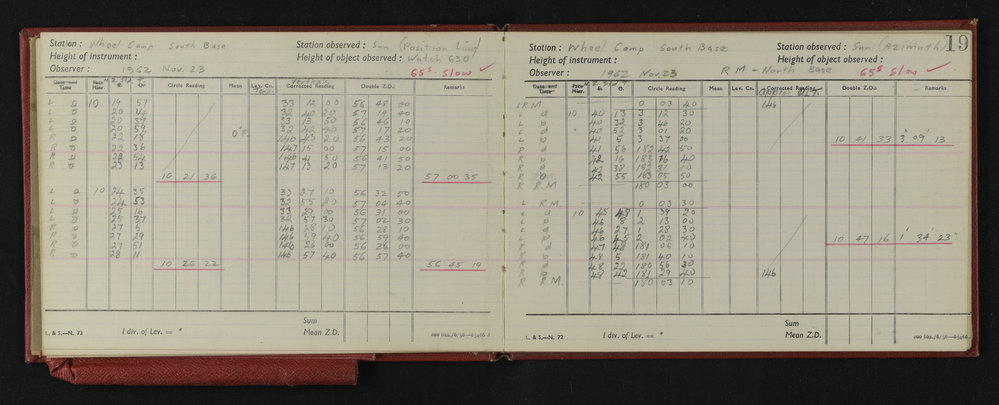 Station : Wheel Camp South Base Station observed : Sun (Position Line)
Height of instrument : Height of object observed : Watch 630
Observer : 1962 Nov. 23 65s Slow ✓
Circle Reading Mean Corrected Reading Double Z.Ds. Remarks
L 10 19 57 33 12 00 56 48 00
L 20 32 40 20 57 19 40
L 20 39 33 13 50 56 46 10
L 20 59 32 42 40 57 17 20
R 22 15 0°F.
R 22 36 147 15 00 57 15 00
R 22 54 146 41 50 56 41 50
R 23 13 147 13 20 57 13 20
10 21 36 57 00 35
L 10 24 35 33 27 10 56 32 50
L 24 53 32 55 20 57 04 40
L 25 16 33 29 00 56 31 00
L 32 57 30 57 02 30
R 27 5 146 28 10 56 28 10
R 27 29 146 59 40 56 59 40
R 27 51 146 26 00 56 26 00
R 28 11 146 57 40 56 57 40
10 26 22 56 45 19
Sum
L. & S.—N. 72 1 div. of Lev. = " Mean Z.D.
19
Station : Wheel Camp South Base Station observed : Sun (Azimuth)
Height of instrument : Height of object observed :
Observer : 1962 Nov. 23 R M - North Base 65s Slow ✓
Circle Reading Mean Corrected Reading Double Z.Ds. Remarks
L R.M 0 03 40 146
L 10 40 13 3 12 30
L 40 32 3 46 20
L 40 52 3 01 20
L 41 5 3 37 00 10 41 33 3° 09' 13
R 41 56 182 42 50
R 42 16 183 16 40
R 42 38 182 31 10
R 42 55 183 05 50
R R.M. 180 03 00
L R.M. 0 03 30
L 10 45 48 1 39 20
L 46 8 2 13 00
L 46 27 1 28 30
L 46 45 2 02 40 10 47 16 1° 34' 23"
R 47 48 181 06 10
R 48 5 181 40 10
R 48 22 180 56 30
R 48 42 181 29 40 146
R R.M. 180 03 10
Sum
L. & S.—N. 72 1 div. of Lev. = " Mean Z.D.